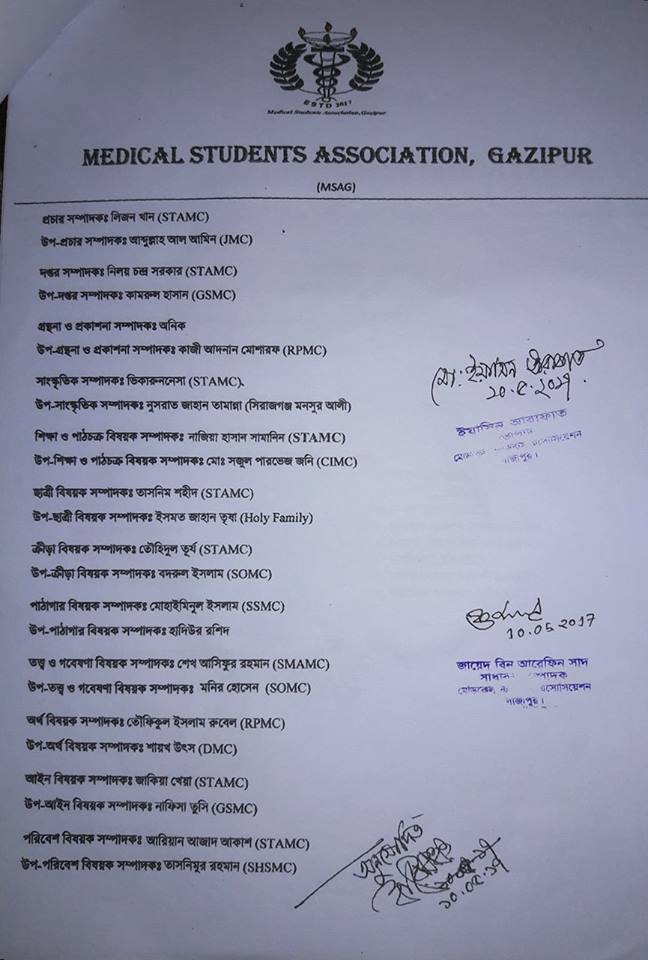 ESTD 2017
Medical Students Association, Gazipur
MEDICAL STUDENTS ASSOCIATION, GAZIPUR
(MSAG)
প্রচার সম্পাদকঃ লিজন খান (STAMC)
উপ-প্রচার সম্পাদকঃ আব্দুল্লাহ আল আমিন (JMC)
দপ্তর সম্পাদকঃ নিলয় চন্দ্র সরকার (STAMC)
উপ-দপ্তর সম্পাদকঃ কামরুল হাসান (GSMC)
গ্রন্থনা ও প্রকাশনা সম্পাদকঃ অনিক
উপ-গ্রন্থনা ও প্রকাশনা সম্পাদকঃ কাজী আদনান মোশারফ (RPMC)
সাংস্কৃতিক সম্পাদকঃ ভিকারুননেসা (STAMC).
উপ-সাংস্কৃতিক সম্পাদকঃ নুসরাত জাহান তামান্না (সিরাজগঞ্জ মনসুর আলী)
শিক্ষা ও পাঠচক্র বিষয়ক সম্পাদকঃ নাজিয়া হাসান সামানিন (STAMC)
উপ-শিক্ষা ও পাঠচক্র বিষয়ক সম্পাদকঃ মোঃ সজুল পারভেজ জনি (CIMC)
ছাত্রী বিষয়ক সম্পাদকঃ তাসনিম শহীদ (STAMC)
উপ-ছাত্রী বিষয়ক সম্পাদকঃ ইসমত জাহান তৃষা (Holy Family)
ক্রীড়া বিষয়ক সম্পাদকঃ তৌহিদুল তূর্য (STAMC)
উপ-ক্রীড়া বিষয়ক সম্পাদকঃ বদরুল ইসলাম (SOMC)
পাঠাগার বিষয়ক সম্পাদকঃ মোহাইমিনুল ইসলাম (SSMC)
উপ-পাঠাগার বিষয়ক সম্পাদকঃ হাদিউর রশিদ
তত্ত্ব ও গবেষণা বিষয়ক সম্পাদকঃ শেখ আসিফুর রহমান (SMAMC)
উপ-তত্ত্ব ও গবেষণা বিষয়ক সম্পাদকঃ মনির হোসেন (SOMC)
অর্থ বিষয়ক সম্পাদকঃ তৌফিকুল ইসলাম রুবেল (RPMC)
উপ-অর্থ বিষয়ক সম্পাদকঃ শায়খ উৎস (DMC)
আইন বিষয়ক সম্পাদকঃ জাকিয়া খেয়া (STAMC)
উপ-আইন বিষয়ক সম্পাদকঃ নাফিসা তুসি (GSMC)
পরিবেশ বিষয়ক সম্পাদকঃ আরিয়ান আজাদ আকাশ (STAMC)
উপ-পরিবেশ বিষয়ক সম্পাদকঃ তাসনিমুর রহমান (SHSMC)
মো: ইয়াসিন আরাফাত
১০.৫.২০১৭
ইয়াসিন আরাফাত
গাজীপুর।
10.05.2017
জায়েদ বিন আরেফিন সাদ
গাজীপুর।
অনুমোদিত
১০.০৫.১৭